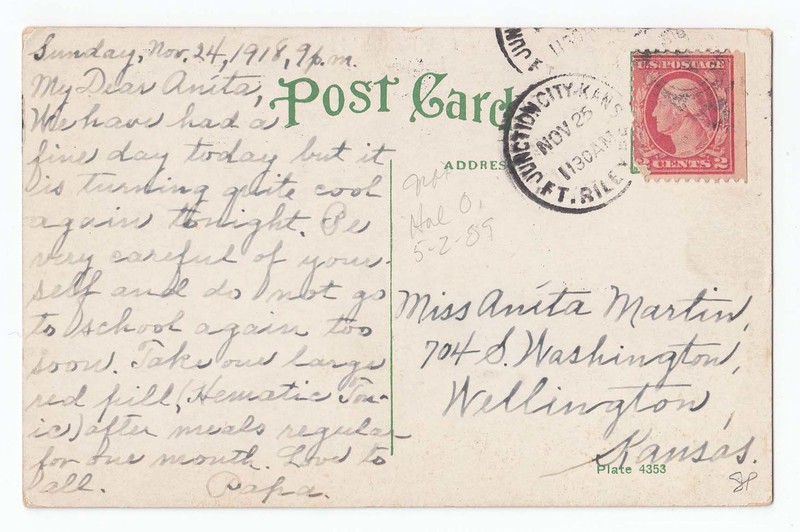 Sunday, Nov. 24, 1918, 9 p.m.
My Dear Anita,
We have had a
fine day today but it
is turning quite cool
again tonight. Be
very careful of your-
self and do not go
to school again too
soon. Take one large
red pill, (Hematic Ton-
ic) after meals regular
for one month. Love to
all. Papa.
Post Card
ADDRESS
JUNCTION CITY, KANS
NOV 25
1130 AM
FT. RILEY
JUN
1130
FT.
U.S. POSTAGE
2 CENTS 2
Hal O.
5-2-89
Miss Anita Martin,
704 S. Washington,
Wellington,
Kansas.
Plate 4353